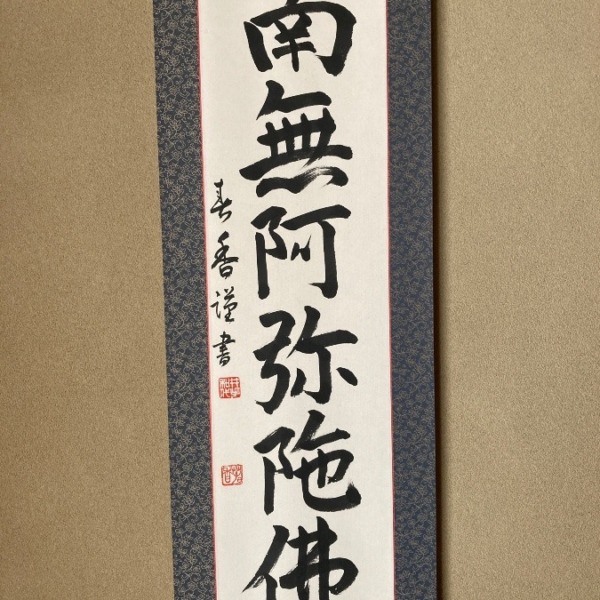 南無阿弥陀佛
春香謹書